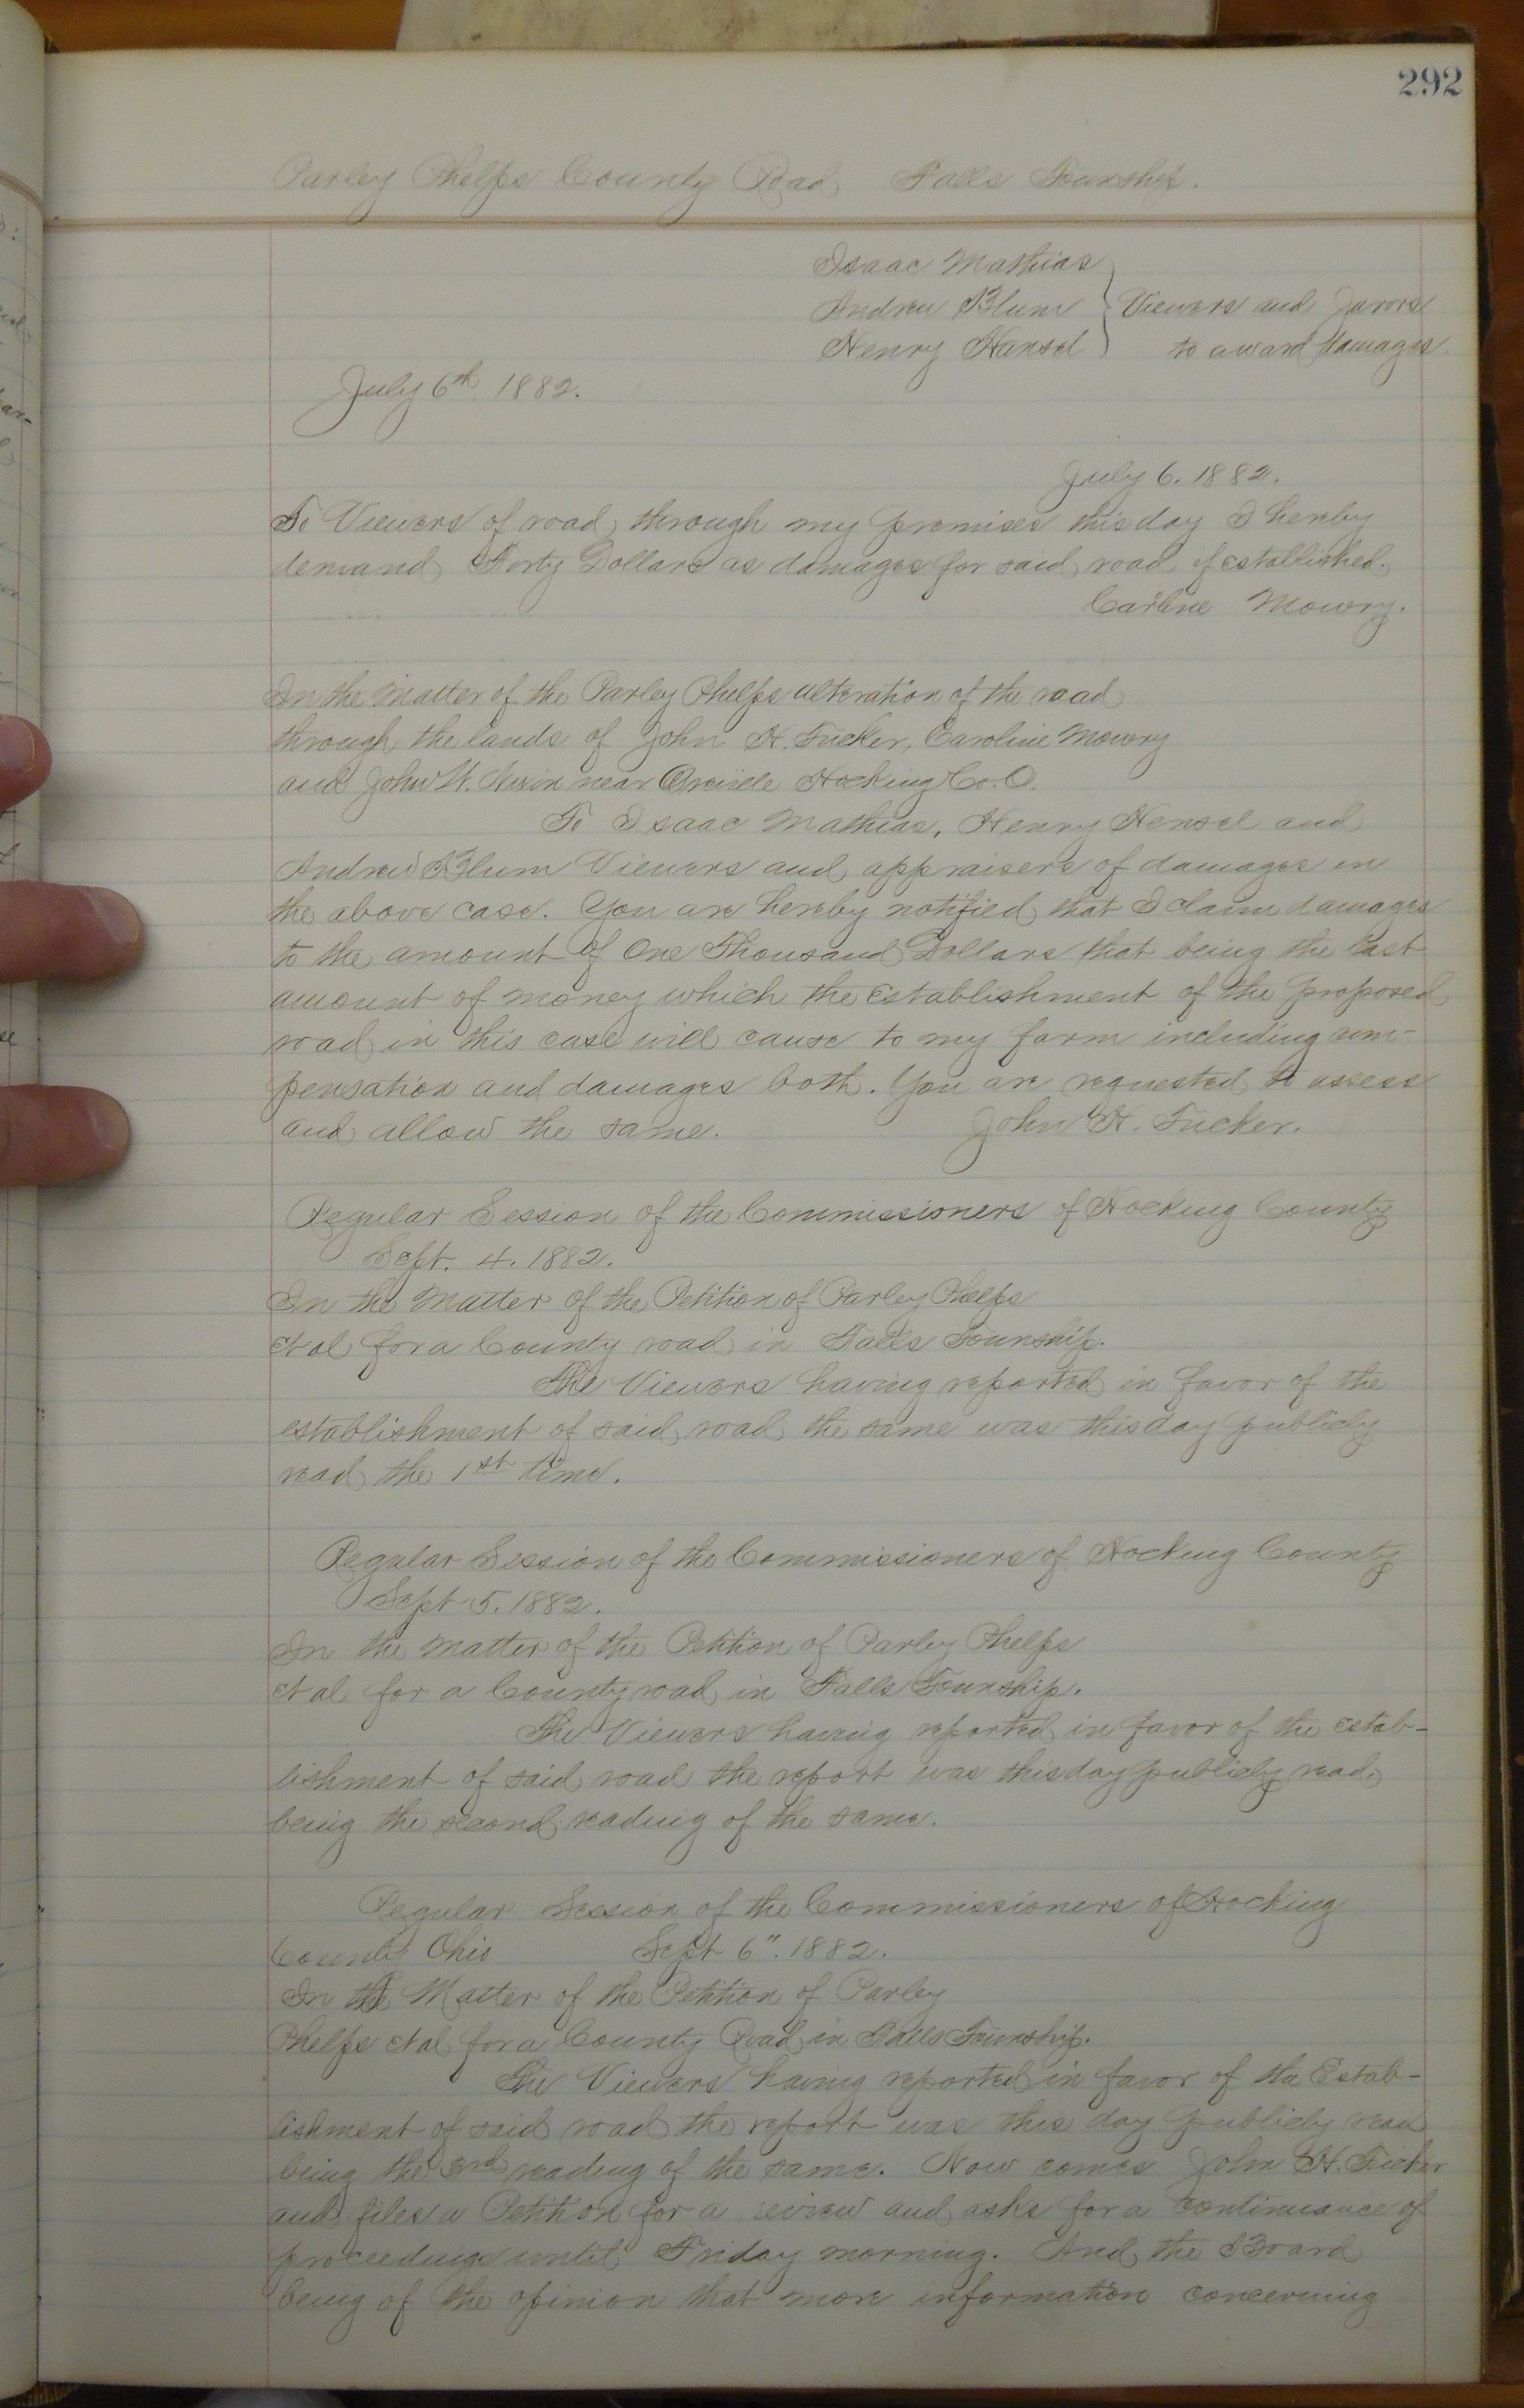 292
Parley Phelps County Road, Falls Township.
Isaac Mathias
Andrew Blum } Viewers and Jurors
Henry Hansel to award damages.
July 6th 1882.
July 6. 1882.
To Viewers of road, through my premises this day I hereby
demand Forty Dollars as damages for said road if established.
Carline Mowry.
In the Matter of the Parley Phelps alteration of the road
through the lands of John H. Tucker, Caroline Mowry
and John W. Nixon near Orville Hocking Co. O.
To Isaac Mathias, Henry Hensel and
Andrew Blum Viewers and appraisers of damages in
the above case. You are hereby notified that I claim damages
to the amount of One Thousand Dollars that being the least
amount of money which the establishment of the proposed
road in this case will cause to my farm including com-
pensation and damages both. You are requested to assess
and allow the same. John H. Tucker.
Regular Session of the Commissioners of Hocking County
Sept. 4. 1882.
In the Matter of the Petition of Parley Phelps
et al for a County road in Falls Township.
The Viewers having reported in favor of the
establishment of said road the same was this day publicly
read the 1st time.
Regular Session of the Commissioners of Hocking County
Sept 5. 1882.
In the Matter of the Petition of Parley Phelps
et al for a County road in Falls Township.
The Viewers having reported in favor of the estab-
lishment of said road the report was this day publicly read,
being the second reading of the same.
Regular Session of the Commissioners of Hocking
County Ohio Sept 6". 1882.
In the Matter of the Petition of Parley
Phelps et al for a County Road in Falls Township.
The Viewers having reported in favor of the Estab-
lishment of said road the report was this day publicly read
being the 3rd reading of the same. Now comes John H. Tucker
and files a Petition for a review and asks for a continuance of
proceedings until Friday morning. And the Board
being of the opinion that more information concerning